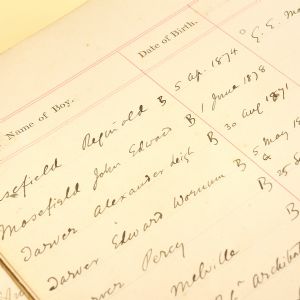 Name of Boy. Date of Birth.
sefield Reginald B 5 Apr. 1874 G. E. M
Masefield John Edward B 1 June 1878
Darver Alexander Leigh B 30 Aug 1871
Darver Edward Wornum B 5 May 18
Darver Percy B 25 S
Melville
Archibal